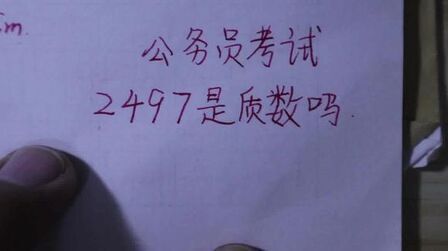 公务员考试
2497是质数吗.